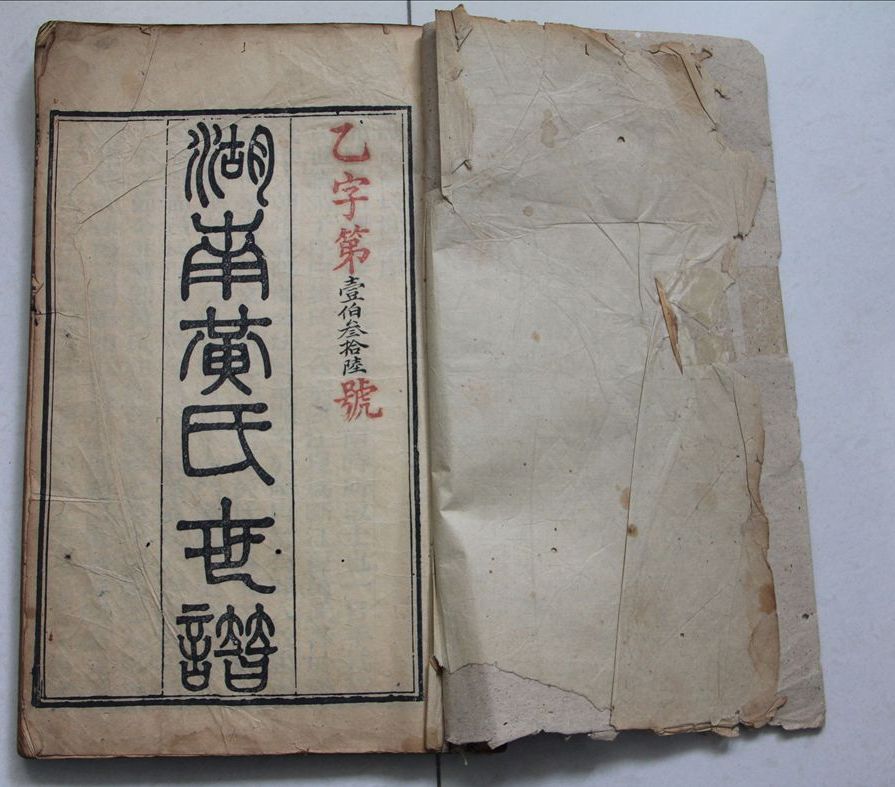 乙字第壹伯叁拾陸號
湖南黃氏世譜